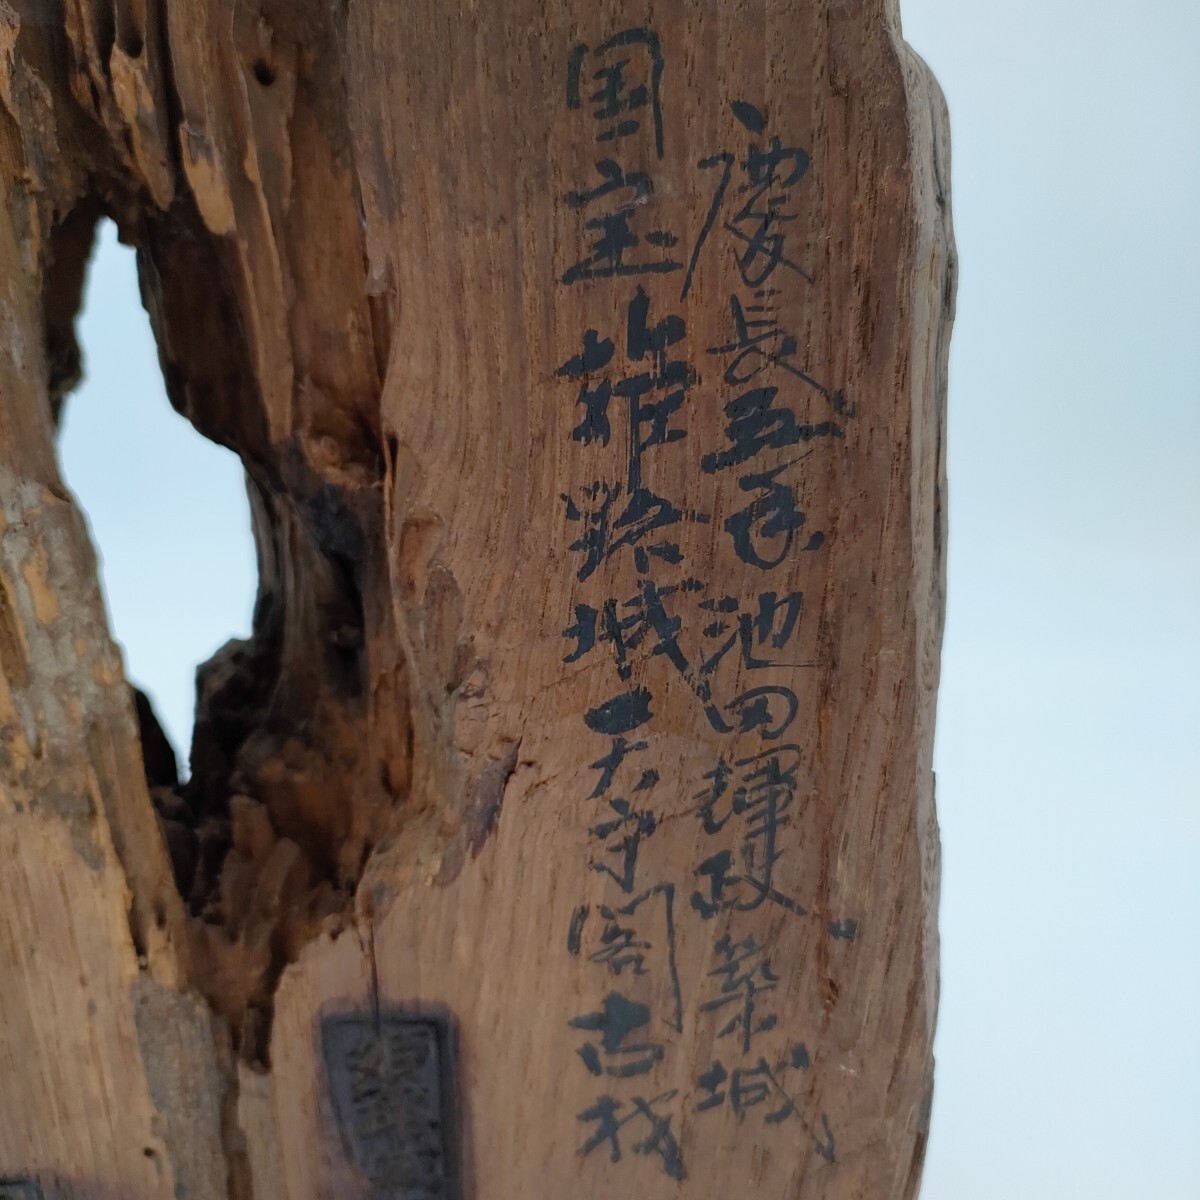 慶長五年池田輝政築城
国宝姫路城天守閣古材